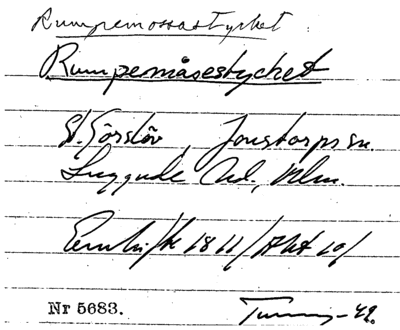 Rumpemossastycket
Rumpemåsestycket
St. Görslöv Jonstorps sn.
Luggude hd, Mlm.
Enskifte 1811 / Akt 10 /
Nr 5683.